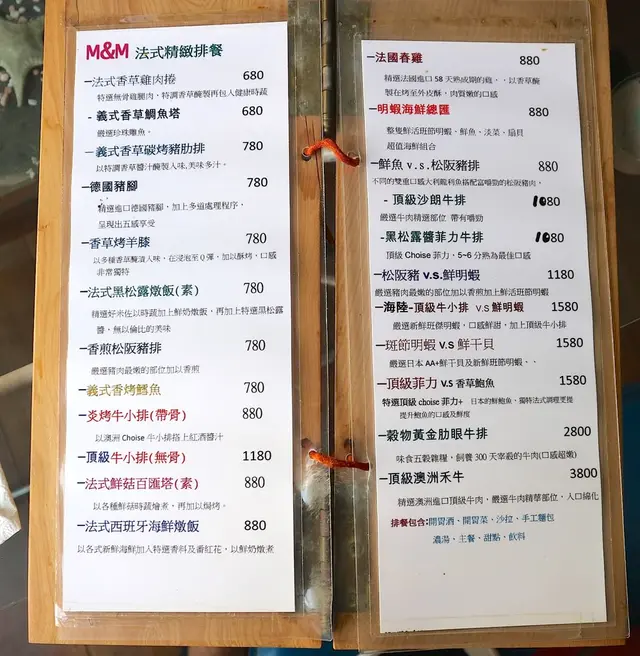 M&M 法式精緻排餐
—法式香草雞肉捲 680
特選無骨雞腿肉，特調香草醃製再包入健康時蔬
- 義式香草鯛魚塔 680
嚴選珍珠雕魚。
—義式香草碳烤豬肋排 780
以特調香草醬汁醃製入味,美味多汁。
—德國豬腳 780
精選進口德國豬腳，加上多道處理程序，
呈現出五感享受
—香草烤羊膝 780
以多種香草醃漬入味，在浸泡至Q彈，加以酥烤，口感
非常獨特
—法式黑松露燉飯(素) 780
精選好米佐以時蔬加上鮮奶燉飯，再加上特選黑松露
醬，無以倫比的美味
—香煎松阪豬排 780
嚴選豬肉最嫩的部位加以香煎
—義式香烤鱈魚 780
—炎烤牛小排(帶骨) 880
以澳洲 Choise 牛小排搭上紅酒醬汁
—頂級牛小排(無骨) 1180
—法式鮮菇百匯塔(素) 880
以各種鮮菇時蔬燴煮，再加以焗烤。
—法式西班牙海鮮燉飯 880
以各式新鮮海鮮加入特選香料及番紅花，以鮮奶燉煮
—法國春雞 880
精選法國進口 58 天熟成期的雞，，以香草醃
製在烤至外皮酥，肉質嫩的口感
—明蝦海鮮總匯 880
整隻鮮活班節明蝦、鮮魚、淡菜、扇貝
超值海鮮組合
—鮮魚 v.s.松阪豬排 880
不同的雙重口感大利龍利魚搭配富嚼勁的松阪豬肉，
- 頂級沙朗牛排 1080
嚴選牛肉精選部位 帶有嚼勁
-黑松露醬菲力牛排 1080
頂級 Choise 菲力，5~6 分熟為最佳口感
—松阪豬 v.s.鮮明蝦 1180
嚴選豬肉最嫩的部位加以香煎加上鮮活班節明蝦
—海陸-頂級牛小排 v.s 鮮明蝦 1580
嚴選新鮮班傑明蝦，口感鮮甜，加上頂級牛小排
—斑節明蝦 v.s 鮮干貝 1580
嚴選日本 AA+鮮干貝及新鮮班節明蝦、、
—頂級菲力 v.s 香草鮑魚 1580
特選頂級 choise 菲力+ 日本的鮮鮑魚、獨特法式調理更提
提升鮑魚的口感及鮮度
—穀物黃金肋眼牛排 2800
味食五穀雜糧，飼養 300 天宰殺的牛肉(口感超嫩)
—頂級澳洲禾牛 3800
精選澳洲進口頂級牛肉，嚴選牛肉精華部位，入口綿化
排餐包含:開胃酒、開胃菜、沙拉、手工麵包
濃湯、主餐、甜點、飲料